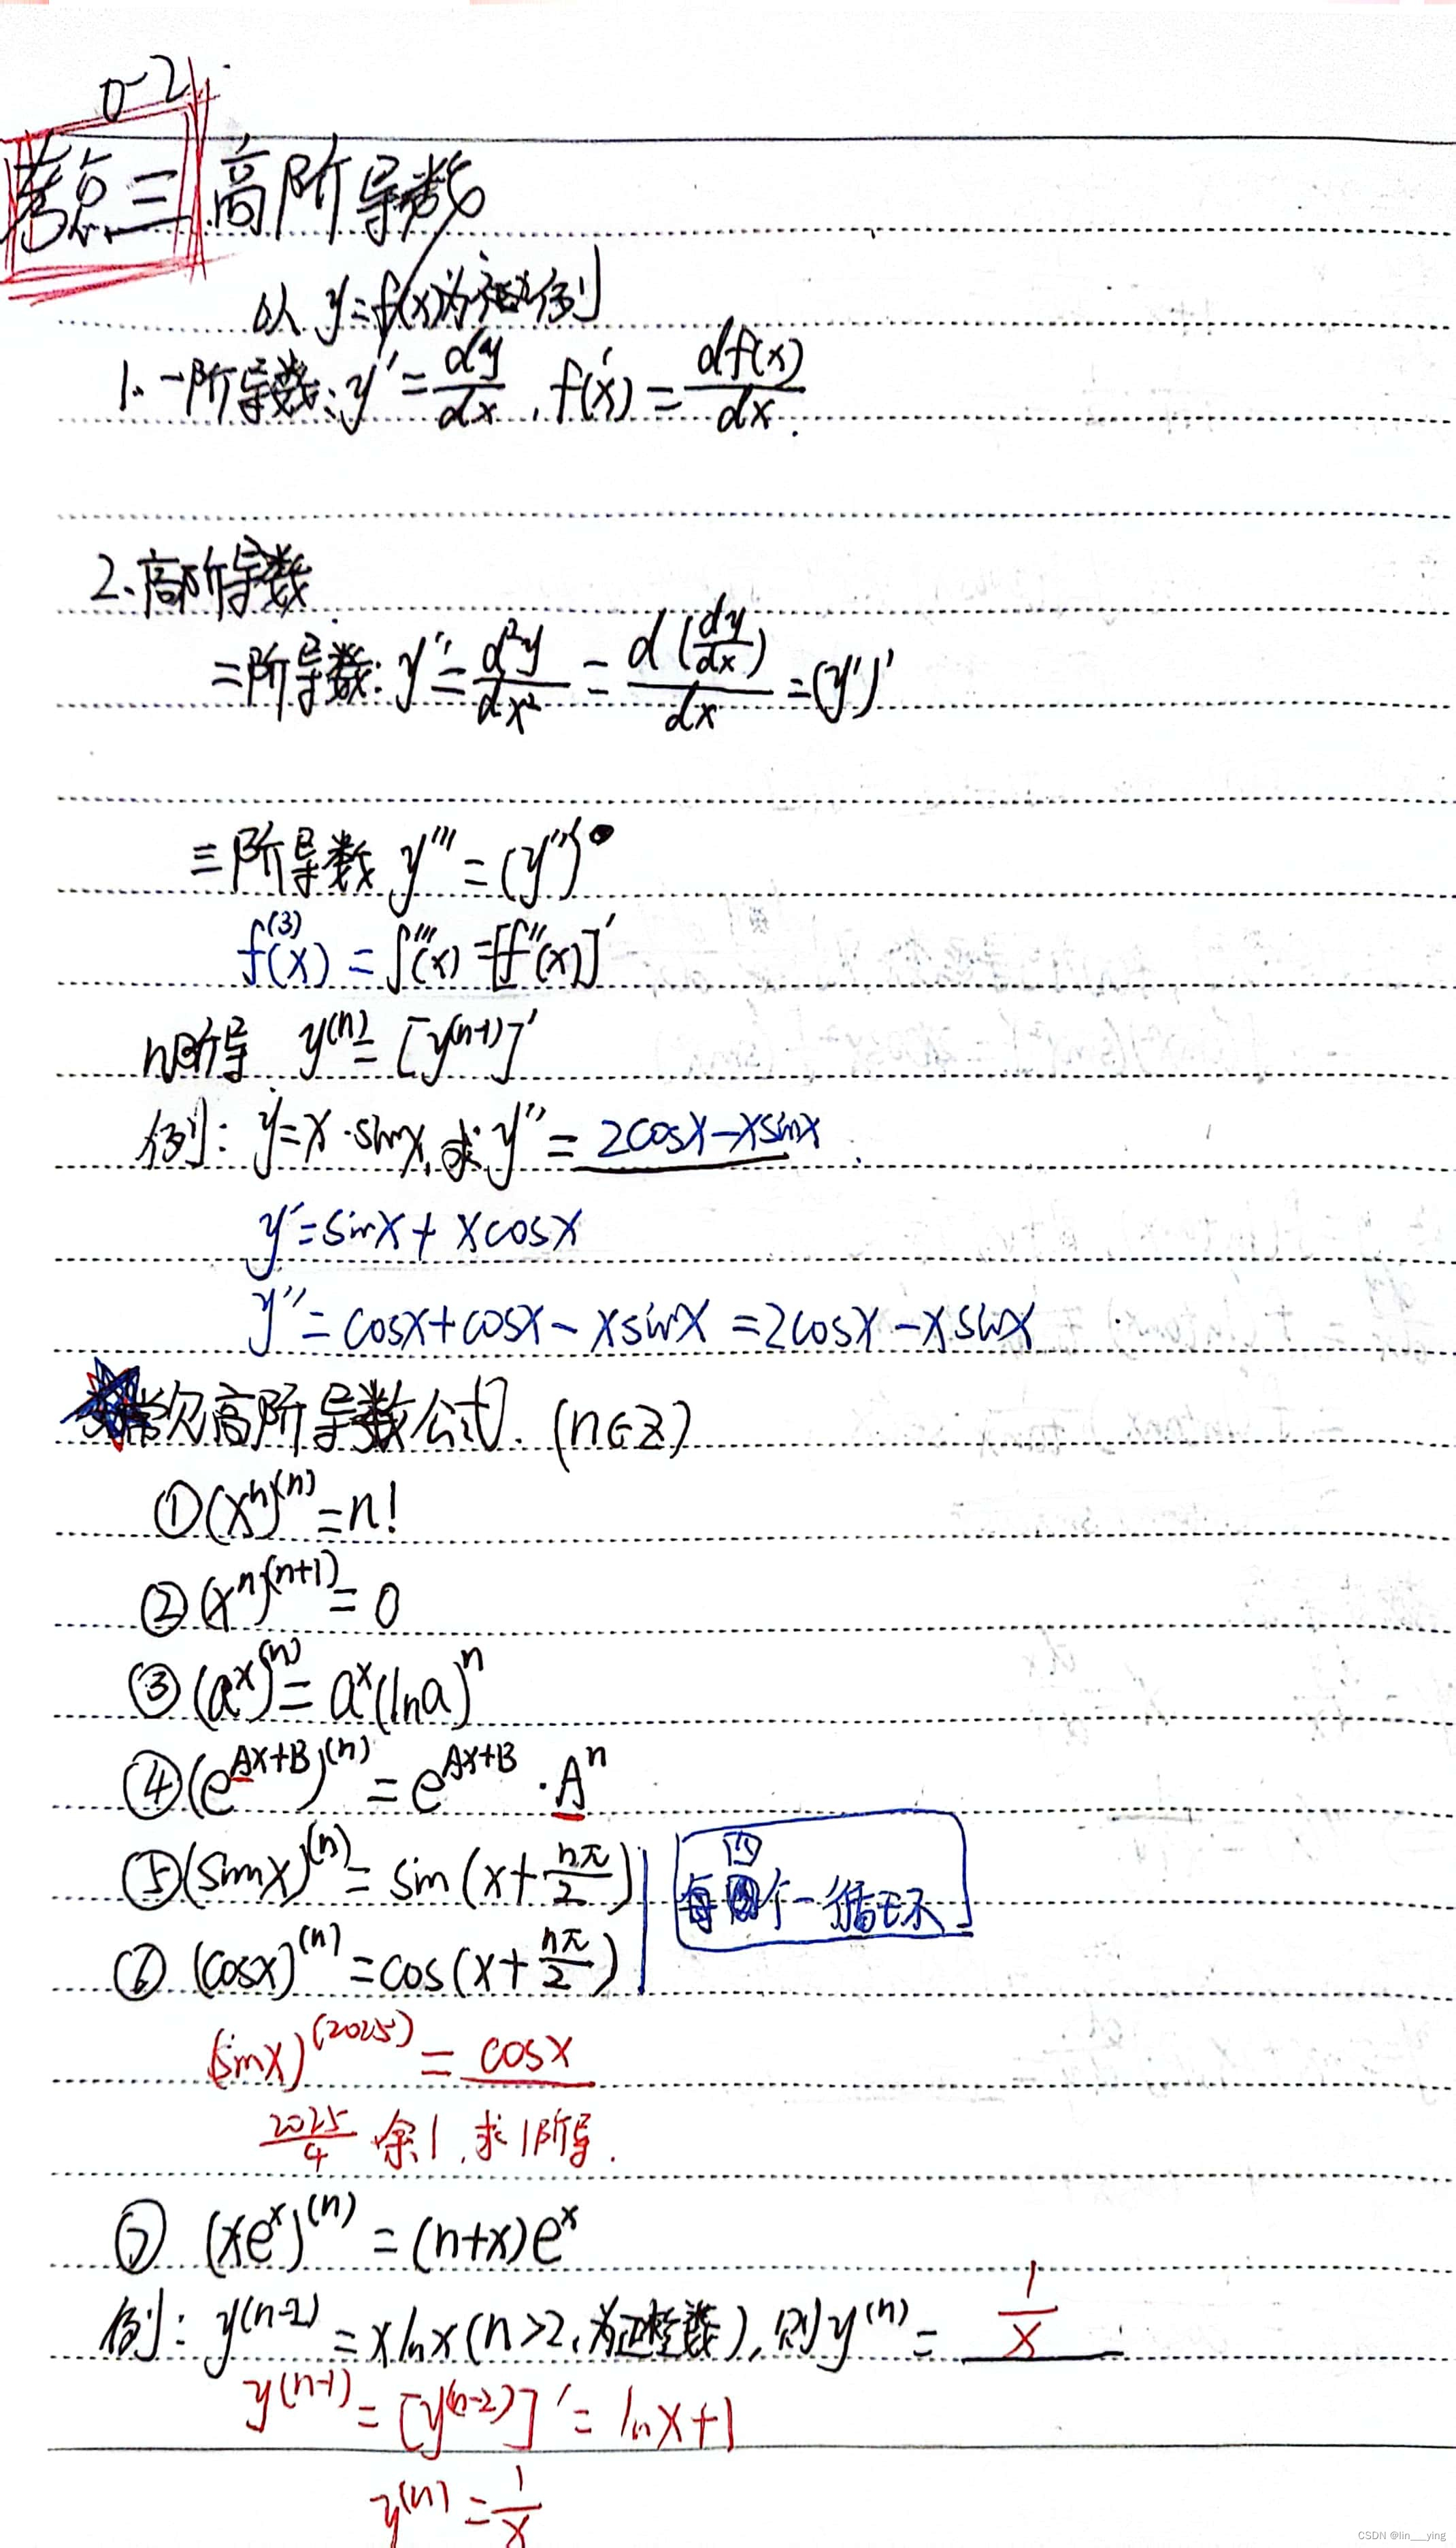 0-2
考点三 高阶导数
以 y=f(x)为例
1. 一阶导数: y'=dy/dx, f'(x)=df(x)/dx.
2. 高阶导数
二阶导数: y''=d²y/dx²=d(dy/dx)/dx=(y')'
三阶导数 y'''=(y'')'
f⁽³⁾(x)=f'''(x)=[f''(x)]'
n阶导 y⁽ⁿ⁾=[y⁽ⁿ⁻¹⁾]'
例: y=x·sinx, 求 y''=2cosx-xsinx.
y'=sinx+xcosx
y''=cosx+cosx-xsinx=2cosx-xsinx
常见高阶导数公式. (n∈Z)
①(xⁿ)⁽ⁿ⁾=n!
②(xⁿ)⁽ⁿ⁺¹⁾=0
③(aˣ)⁽ⁿ⁾=aˣ(lna)ⁿ
④(e^(Ax+B))⁽ⁿ⁾=e^(Ax+B)·Aⁿ
⑤(sinx)⁽ⁿ⁾=sin(x+nπ/2)
四
每四个一循环
⑥(cosx)⁽ⁿ⁾=cos(x+nπ/2)
(sinx)⁽²⁰²⁵⁾=cosx
2025/4 余1, 求1阶导.
⑦(xeˣ)⁽ⁿ⁾=(n+x)eˣ
例: y⁽ⁿ⁻²⁾=xlnx(n>2, 为正整数), 则y⁽ⁿ⁾=1/x
y⁽ⁿ⁻¹⁾=[y⁽ⁿ⁻²⁾]'=lnx+1
y⁽ⁿ⁾=1/x
CSDN @lin___ying